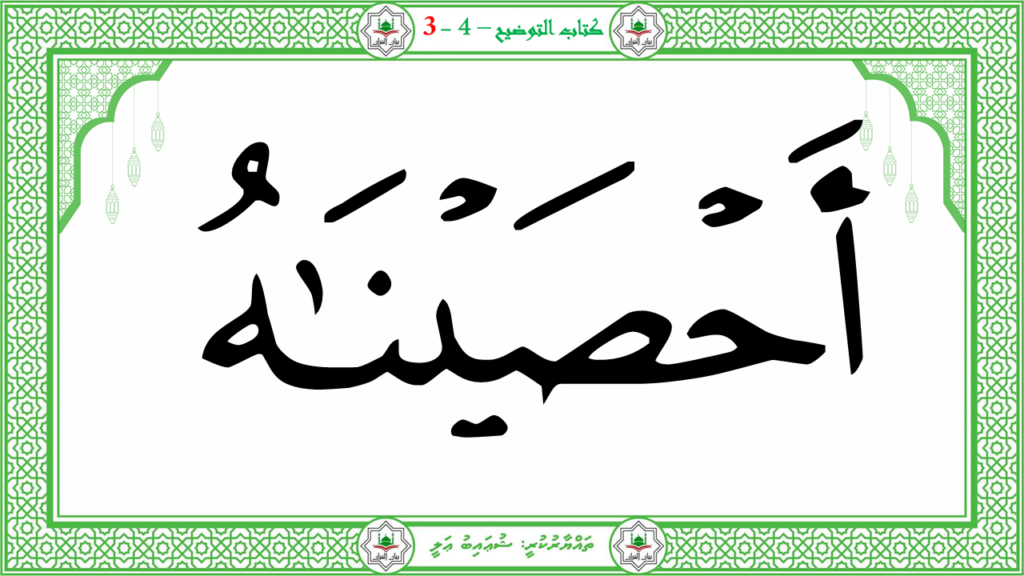 كتاب التوضيح – 4 - 3
أَحْصَيْنَـٰهُ
ތައްޔާރުކުރީ: ޝުޢައިބު ޢަލީ